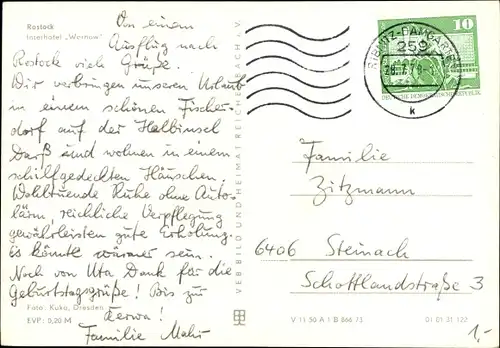 Rostock
Interhotel „Warnow"
Von einem
Ausflug nach
Rostock viele Grüße.
Wir verbringen unseren Urlaub
in einem schönen Fischer-
dorf auf der Halbinsel
Darß und wohnen in einem
schilfgedeckten Häuschen.
Wohltuende Ruhe ohne Auto-
lärm, reichliche Verpflegung
gewährleisten gute Erholung.
Es könnte wärmer sein.
Noch von Uta Dank für die
Geburtstagsgrüße! Bis zur
Kerwa!
Familie
Foto: Kuka, Dresden
EVP: 0,20 M
VEB BILD UND HEIMAT REICHENBACH I. V.
V 11 50 A 1 B 866 73
01 01 31 122
RIBNITZ-DAMGARTEN
259
k
10
DEUTSCHE DEMOKRATISCHE REPUBLIK
Familie
Zitzmann
6406 Steinach
Schottlandstraße 3
1,-